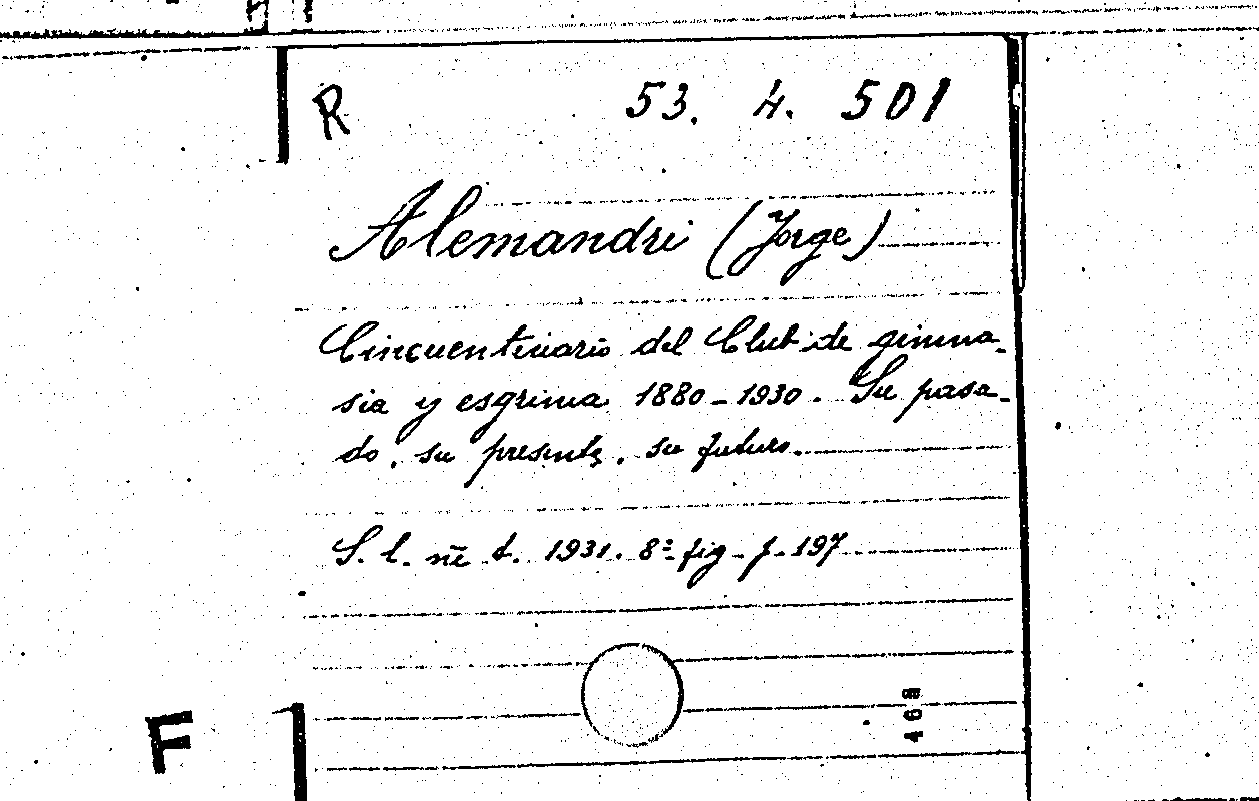 R 53. 4. 501
Alemandri (Jorge)
Cincuentenario del Club de gimna-
sia y esgrima 1880-1930. Su pasa-
do, su presente, su futuro.
S. l. ni t. 1931. 8º fig. f. 197
468
F